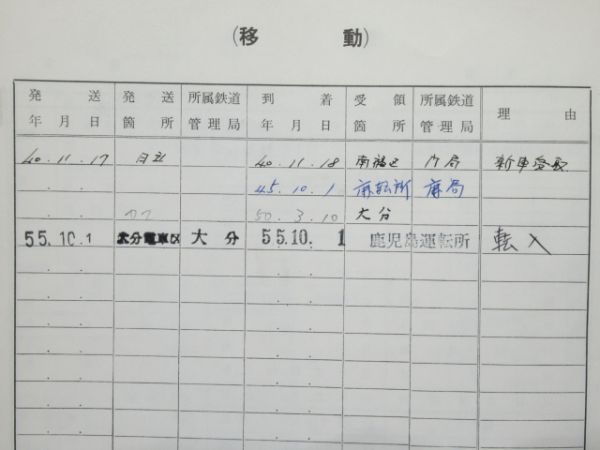 (移 動)
発送年月日 発送箇所 所属鉄道管理局 到着年月日 受領箇所 所属鉄道管理局 理由
40.11.17 日立 40.11.18 南福区 門局 新車受取
45.10.1 鹿転所 鹿局
カコ 50.3.10 大分
55.10.1 大分電車区 大分 55.10.1 鹿児島運転所 転入